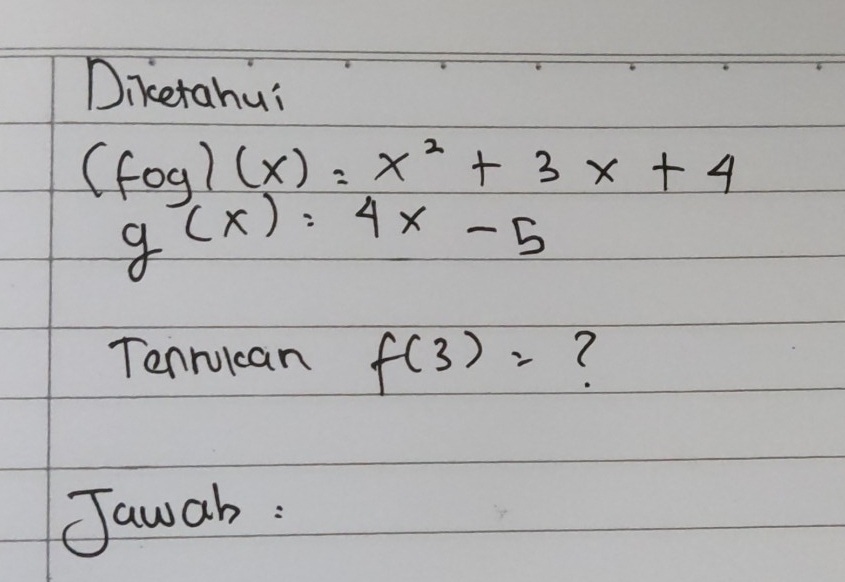 Diketahui
(fog) (x) = x² + 3x + 4
g (x) = 4x - 5
Tentukan f(3) = ?
Jawab :